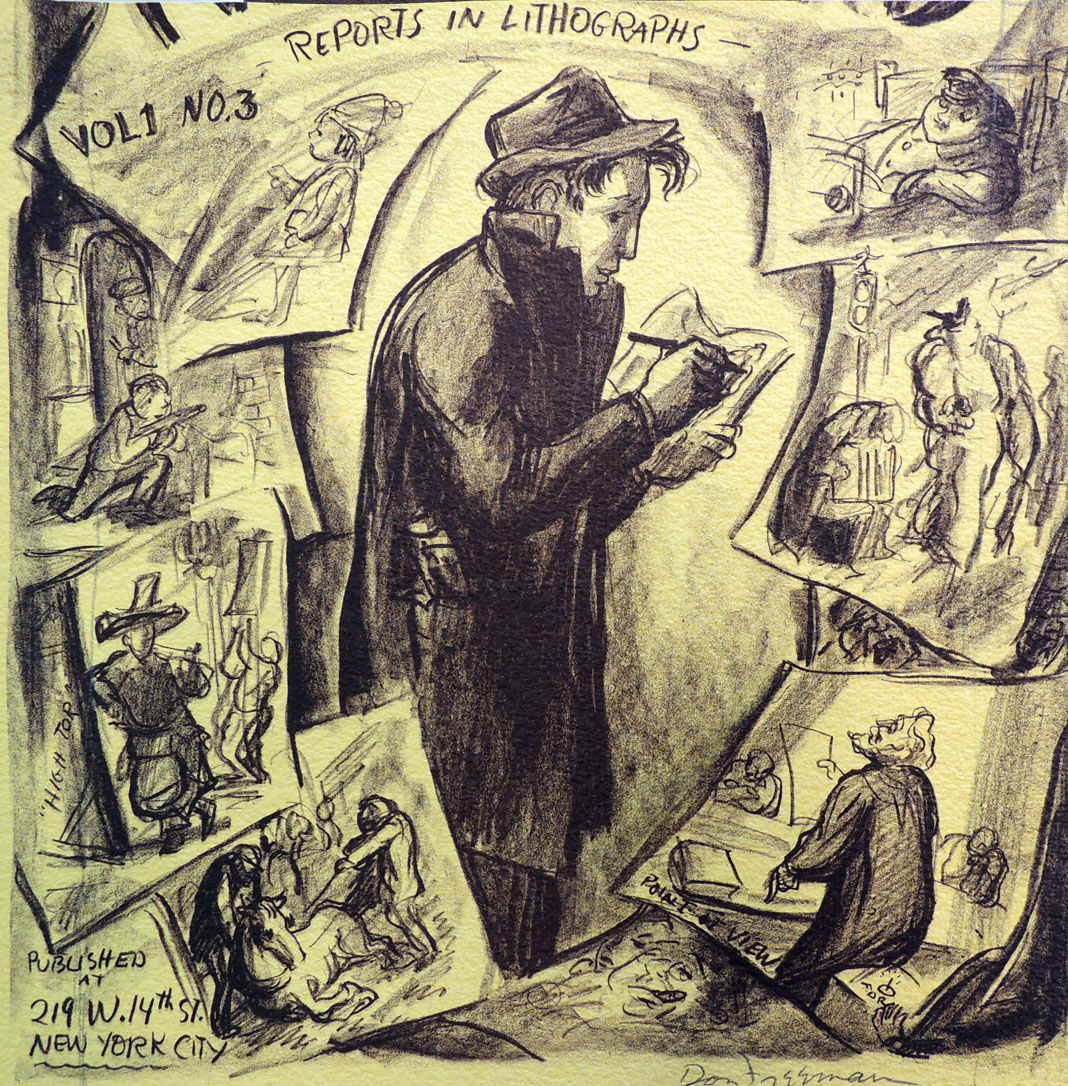 REPORTS IN LITHOGRAPHS —
VOL 1 NO. 3
"HIGH TOR"
POINT OF VIEW
PUBLISHED
AT
219 W. 14th ST.
NEW YORK CITY
Don Freeman